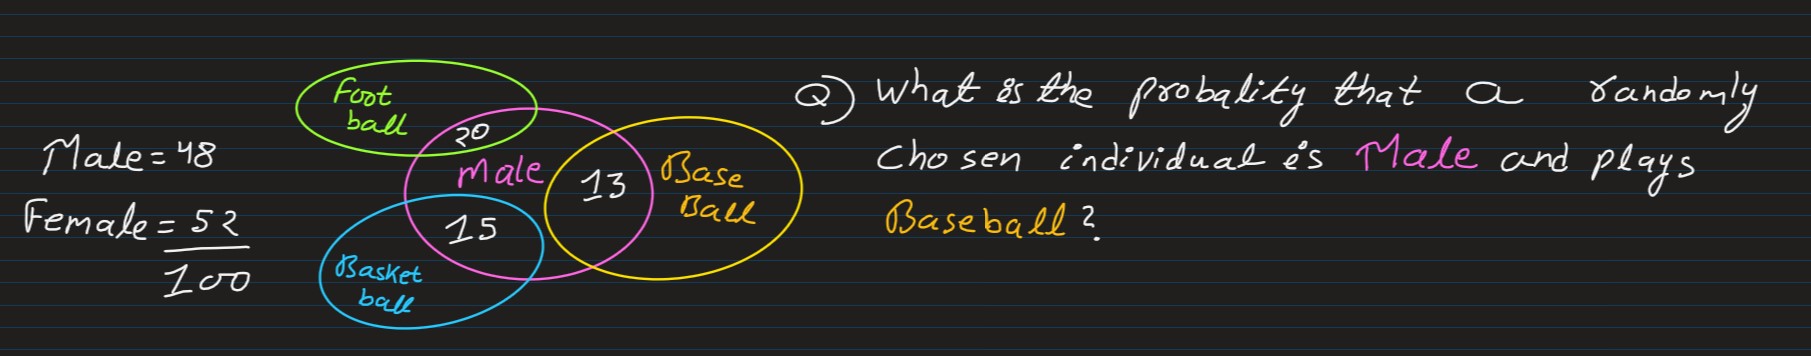 Male = 48
Female = 52
100
Foot
ball
20
Male
13
Base
Ball
15
Basket
ball
Q) What is the probality that a randomly
chosen individual is Male and plays
Baseball?